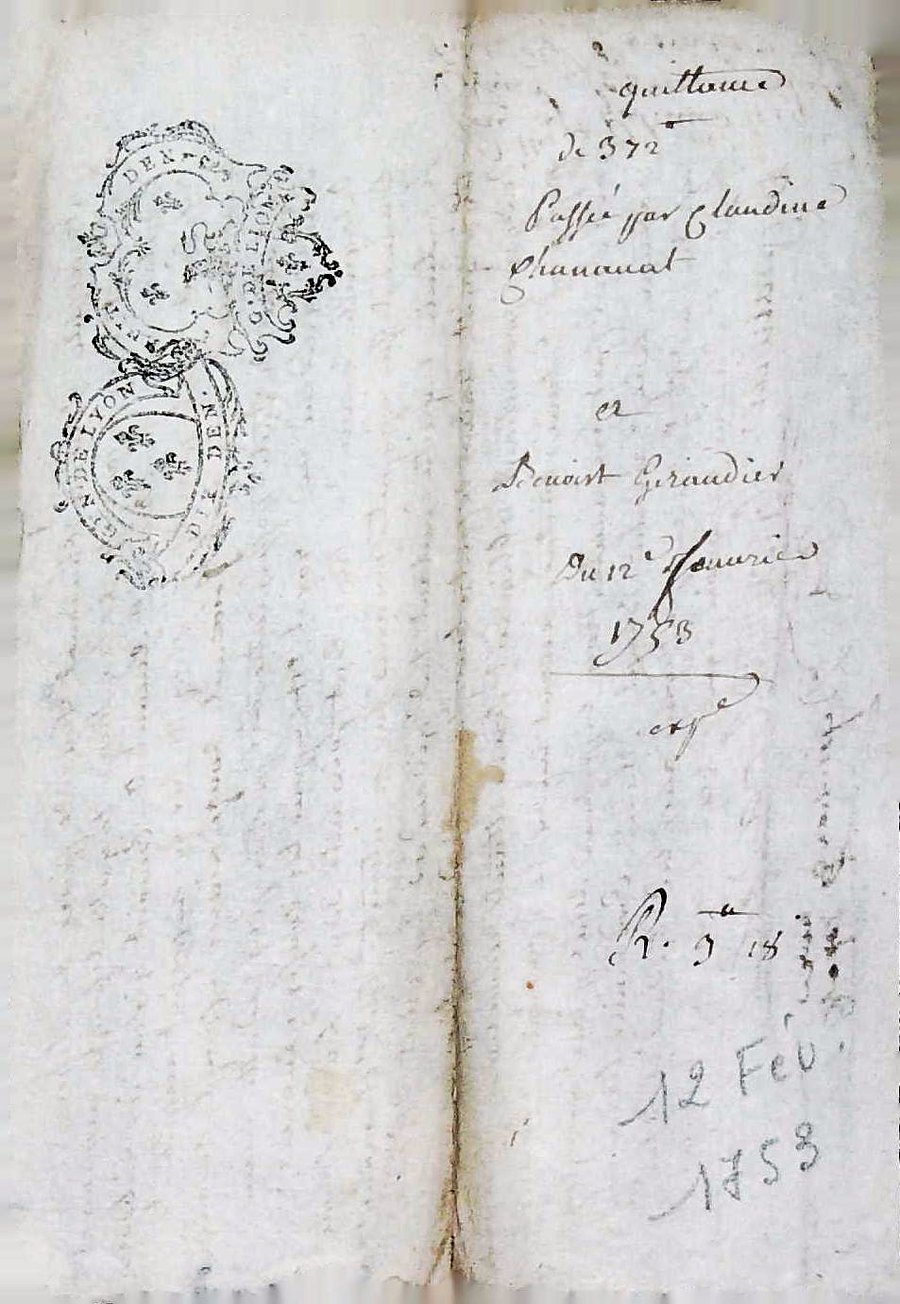 GEN DE LYON
DEN
G. DE LION
DIX DEN
quittance
de 372
Passée par Claudine
Chavanat
et
Benoist Giraudier
Du 12e feuvrier
1753
expé
R. 3 18
12 Fév.
1753